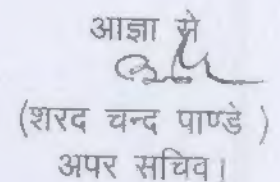 आज्ञा से
(शरद चन्द पाण्डे )
अपर सचिव।